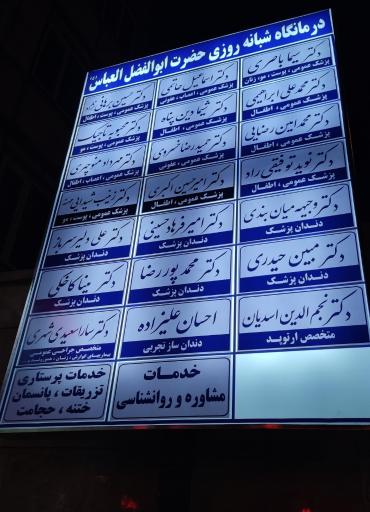 درمانگاه شبانه روزی حضرت ابوالفضل العباس (ع)
دکتر سیما باصری
پزشک عمومی ، پوست ، مو، زنان
دکتر اسماعیل حاتمی
پزشک عمومی ، اعصاب ، عفونی
دکتر حسین برهانی نژاد
پزشک عمومی ، پوست ، اطفال
دکتر محمد علی ابراهیمی
پزشک عمومی ، اطفال
دکتر شیما دین پناه
پزشک عمومی ، اطفال
دکتر محبوبه تاجیک
پزشک عمومی ، پوست ، مو
دکتر محمد امین رضایی
پزشک عمومی ، اطفال
دکتر حمید رضا خسروی
پزشک عمومی ، عفونی
دکتر مهرداد منوچهری
پزشک عمومی ، اعصاب ، اطفال
دکتر نوید توفیقی راد
پزشک عمومی ، اطفال
دکتر امیرحسین اکبری
پزشک عمومی ، اطفال
دکتر زینب
پزشک عمومی ، پوست ، مو
دکتر وجیهه میان بندی
دندان پزشک
دکتر امیر فرهاد حسینی
دندان پزشک
دکتر علی دلیر سرباز
دندان پزشک
دکتر مبین حیدری
دندان پزشک
دکتر محمد پوررضا
دندان پزشک
دکتر مینا کاخکی
دندان پزشک
دکتر نجم الدین اسدیان
متخصص ارتوپد
احسان علیزاده
دندان ساز تجربی
دکتر سارا سعیدی
متخصص جراحی عمومی
خدمات
مشاوره و روانشناسی
خدمات پرستاری
تزریقات ، پانسمان
ختنه ، حجامت